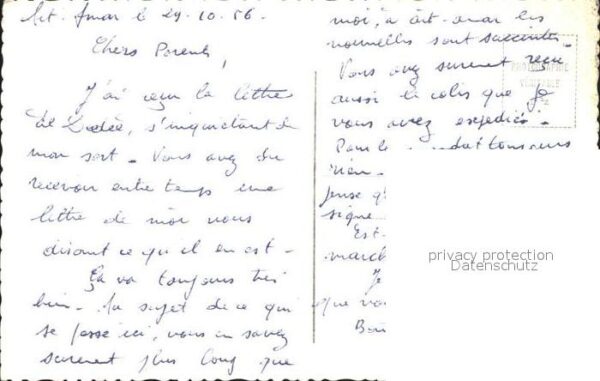 le 29.10.56.
Chers Parents,
J'ai reçu la lettre
de Dédée, s'inquiétant de
mon sort - Vous avez du
recevoir entre temps une
lettre de moi vous
disant ce qu'il en est -
Ça va toujours très
bien - Au sujet de ce qui
se passe ici, vous en savez
surement plus long que
moi, à car les
nouvelles sont succintes -
Vous avez surement reçu
aussi le colis que je
vous avez expédiés -
Pour le ... dat toujours
rien -
signe
Est-
march
Je
que vo
Bon
PHOTOGRAPHIE
VERITABLE
privacy protection
Datenschutz